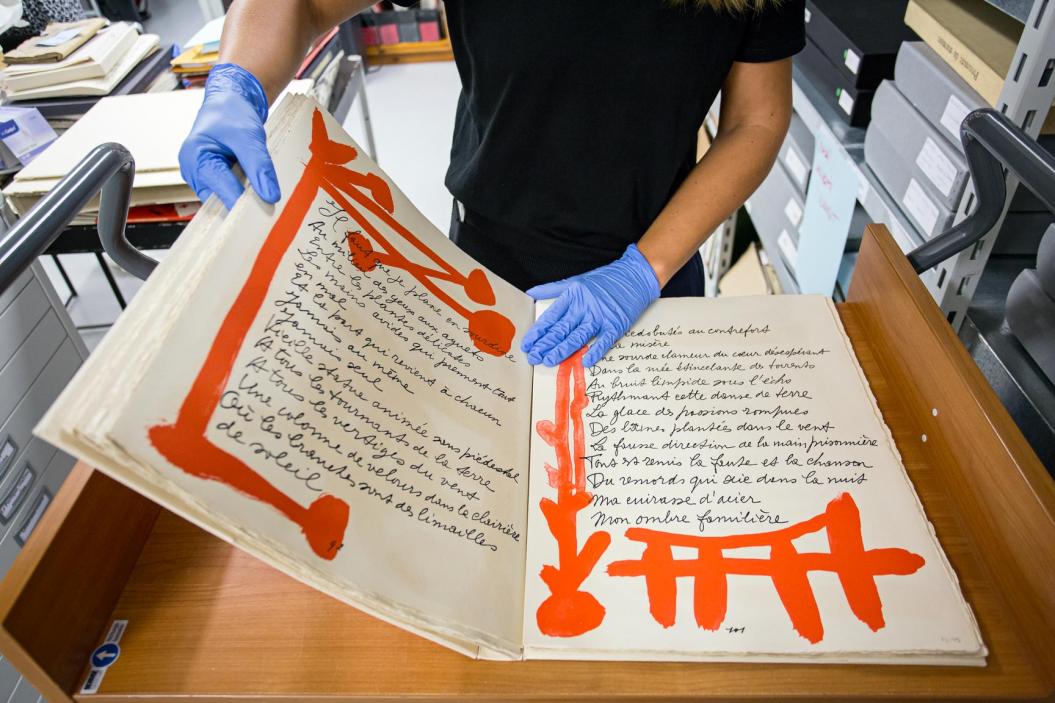 Il faut que je plane en sourdine
Au milieu des yeux aux aguets
Entre les plantes délicates
Les mains avides qui prennent tout
en mal
et la part qui revient à chacun
Jamais au même
Jamais seul
Vieille stature animée sans piédestal
A tous les tournants de la terre
A tous les vertiges du vent
Une colonne de velours dans la clairière
Où les branches sont des limailles
de soleil
98
au contrefort
misère
sourde clameur du cœur désespérant
Dans la mée étincelante des torrents
Au bruit limpide sous l'écho
Rythmant cette danse de terre
La glace des passions rompues
Des bornes plantées dans le vent
La fausse direction de la main prisonnière
Tout est remis la faute et la chanson
Du remords qui scie dans la nuit
Ma cuirasse d'acier
Mon ombre familière
101